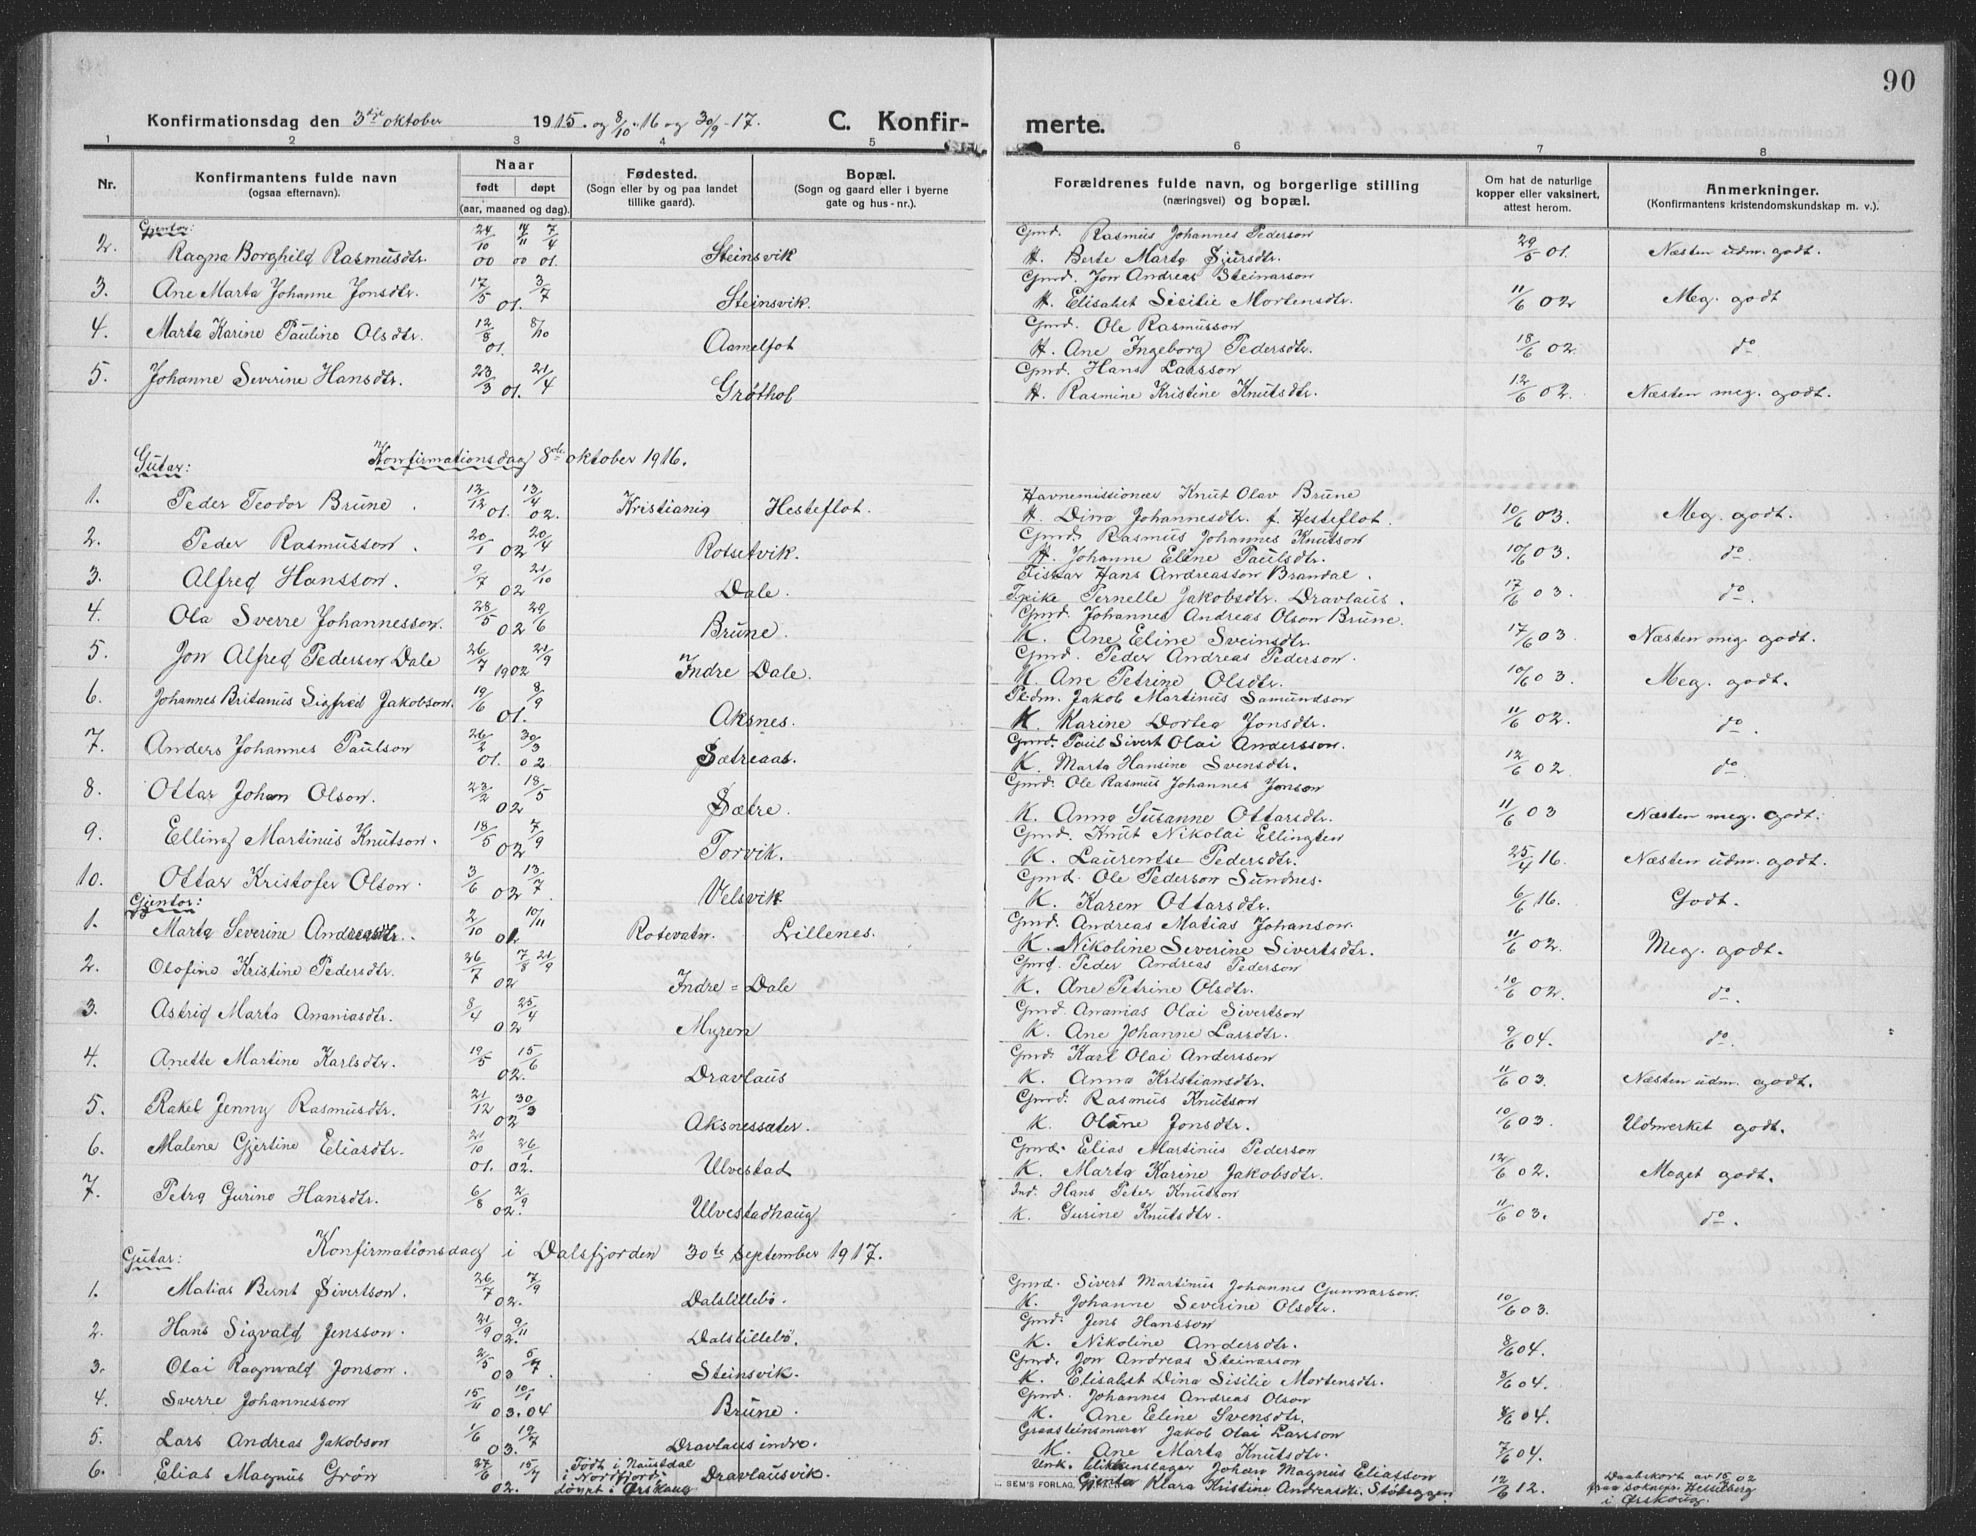 90
Konfirmationsdag den 3die oktober 1915. og 8/10-16 og 30/9-17. C. Konfirmerte.
1 2 3 4 5 6 7 8
Nr. Konfirmantens fulde navn (ogsaa efternavn). Naar født døpt (aar, maaned og dag). Fødested. (Sogn eller by og paa landet tillike gaard). Bopæl. (Sogn og gaard eller i byerne gate og hus-nr.). Forældrenes fulde navn, og borgerlige stilling (næringsvei) og bopæl. Om hat de naturlige kopper eller vaksinert, attest herom. Anmerkninger. (Konfirmantens kristendomskundskap m. v.).
Gjentor:
2. Ragna Borghild Rasmusdtr. 24/10 00 14/11 00 7/4 01. Steinsvik Gmd. Rasmus Johannes Pederson H. Berte Marta Sjursdtr. 29/5 01. Næsten udm. godt.
3. Ane Marta Johanne Jonsdtr. 17/5 01. 3/7 Steinsvik. Gmd. Jon Andreas Steinarson H. Elisabet Sisilie Mortensdtr. 11/6 02 Meg. godt
4. Marta Karine Pauline Olsdtr. 12/8 01. 8/10 Aamelfot Gmd. Ole Rasmusson H. Ane Ingeborg Pedersdtr. 18/6 02. do
5. Johanne Severine Hansdtr. 23/3 01. 21/4 Grøthol Gmd. Hans Larsson H. Rasmine Kristine Knutsdtr. 12/6 02. Næsten meg. godt.
Gutar: Konfirmationsdag 8de oktober 1916.
1. Peder Teodor Brune. 12/12 01. 13/4 02. Kristiania Hesteflot. Havnemissionær Knut Olav Brune H. Dina Johannesdtr. f. Hesteflot. 10/6 03. Meg. godt.
2. Peder Rasmusson. 20/1 02 20/4 Rotsetvik. Gmd. Rasmus Johannes Knutson H. Johanne Eline Paulsdtr. 10/6 03. do
3. Alfred Hansson. 9/7 02 21/10 Dale. Fiskar Hans Andreasson Brandal. Pike Pernelle Jakobsdtr. Dravlaus. 17/6 03. do.
4. Ola Sverre Johannesson. 28/5 02 29/6 Brune. Gmd. Johannes Andreas Olson Brune. K. Ane Eline Sveinsdtr. 17/6 03. Næsten meg. godt.
5. Jon Alfred Pederson Dale 26/7 1902 21/9 Indre Dale. Gmd. Peder Andreas Pederson. K. Ane Petrine Olsdtr. 10/6 03. Meg. godt.
6. Johannes Britanus Sigfred Jakobson. 19/6 01. 8/9 Aksnes. Pl.dm. Jakob Martinus Samundson K. Karine Dortea Jonsdtr. 11/6 02. do.
7. Anders Johannes Paulson 26/2 01. 30/3 02 Sætreaas. Gmd. Paul Sivert Olai Andersson. K. Marta Hansine Svensdtr. 12/6 02. do
8. Ottar Johan Olson. 23/2 02 18/5 Sætre. Gmd. Ole Rasmus Johannes Jonson K. Anna Susanne Ottarsdtr. 11/6 03 Næsten meg. godt.
9. Elling Martinus Knutson. 18/5 02 7/9 Torvik. Gmd. Knut Nikolai Ellingsen K. Laurentse Pedersdtr. 25/4 16. Næsten udm. godt.
10. Ottar Kristofer Olson. 3/6 02 13/7 Velsvik Gmd. Ole Pederson Sundnes. K. Karen Ottarsdtr. 6/6 16. Godt.
Gjentor:
1. Marta Severine Andreasdtr. 2/10 01 10/11 Rotevatn. Lillenes. Gmd. Andreas Matias Johanson K. Nikoline Severine Sivertsdtr. 11/6 02. Meg. godt.
2. Olofine Kristine Pedersdtr. 26/7 02 7/8 21/9 Indre-Dale Gmd. Peder Andreas Pederson K. Ane Petrine Olsdtr. 10/6 02. do.
3. Astrid Marta Ananiasdtr. 8/4 02 25/4 Myren Gmd. Ananias Olai Sivertson K. Ane Johanne Larsdtr. 9/6 04. do.
4. Anette Martine Karlsdtr. 19/5 02. 15/6 Dravlaus Gmd. Karl Olai Andersson K. Anna Kristiansdtr. 11/6 03. Næsten udm. godt.
5. Rakel Jenny Rasmusdtr. 21/12 02 30/3 Aksnessæter. Gmd. Rasmus Knutson K. Oline Jonsdtr. 10/6 03. Udmerket godt.
6. Malene Gjertine Eliasdtr. 21/10 01. 26/1 02. Ulvestad Gmd. Elias Martinus Pederson K. Marta Karine Jakobsdtr. 12/6 02. Meget godt.
7. Petra Gurine Hansdtr. 6/8 02. 2/9 Ulvestadhaug Ind. Hans Peter Knutson K. Gurine Knutsdtr. 11/6 03. do.
Gutar: Konfirmationsdag i Dalsfjorden 30te september 1917.
1. Matias Bernt Sivertson. 26/7 02. 7/9 Dalslillebø. Gmd. Sivert Martinus Johannes Gunnarson. K. Johanne Severine Olsdtr. 10/6 03.
2. Hans Sigvald Jensson. 21/9 02. 9/11 Dalslillebø. Gmd. Jens Hansson K. Nikoline Andersdtr. 8/6 04.
3. Olai Ragnvald Jonson. 2/5 03 5/7. Steinsvik. Gmd. Jon Andreas Steinarson K. Elisabet Dina Sisilie Mortensdtr. 8/6 04.
4. Sverre Johannesson 15/11 03. 10/1 04 Brune. Gmd. Johannes Andreas Olson K. Ane Eline Svensdtr. 8/6 04.
5. Lars Andreas Jakobson 1/6 03. 19/7 Dravlaus indre. Graasteinsmurer Jakob Olai Larsson K. Ane Marta Knutsdtr. 7/6 04.
6. Elias Magnus Grøn 27/6 02. 15/7 Født i Naustdal i Nordfjord. døypt i Ørskaug Dravlausvik. Johan Magnus Eliasson Gjenta Klara Kristine Andreasdtr. 12/6 12. Daabskort av 15 02 fraa soknepr. Hesselberg i Ørskoug.
SEM'S FORLAG,